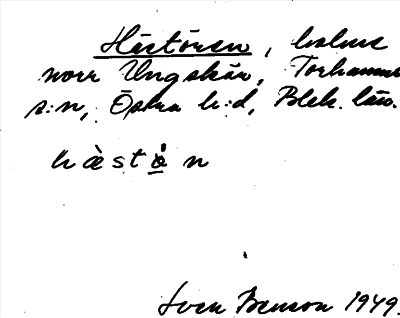 Hästören, holme
norr Ungskär, Torhamns
s:n, Östra h:d, Blek. län.
hàstö̀n
Sven Benson 1949.